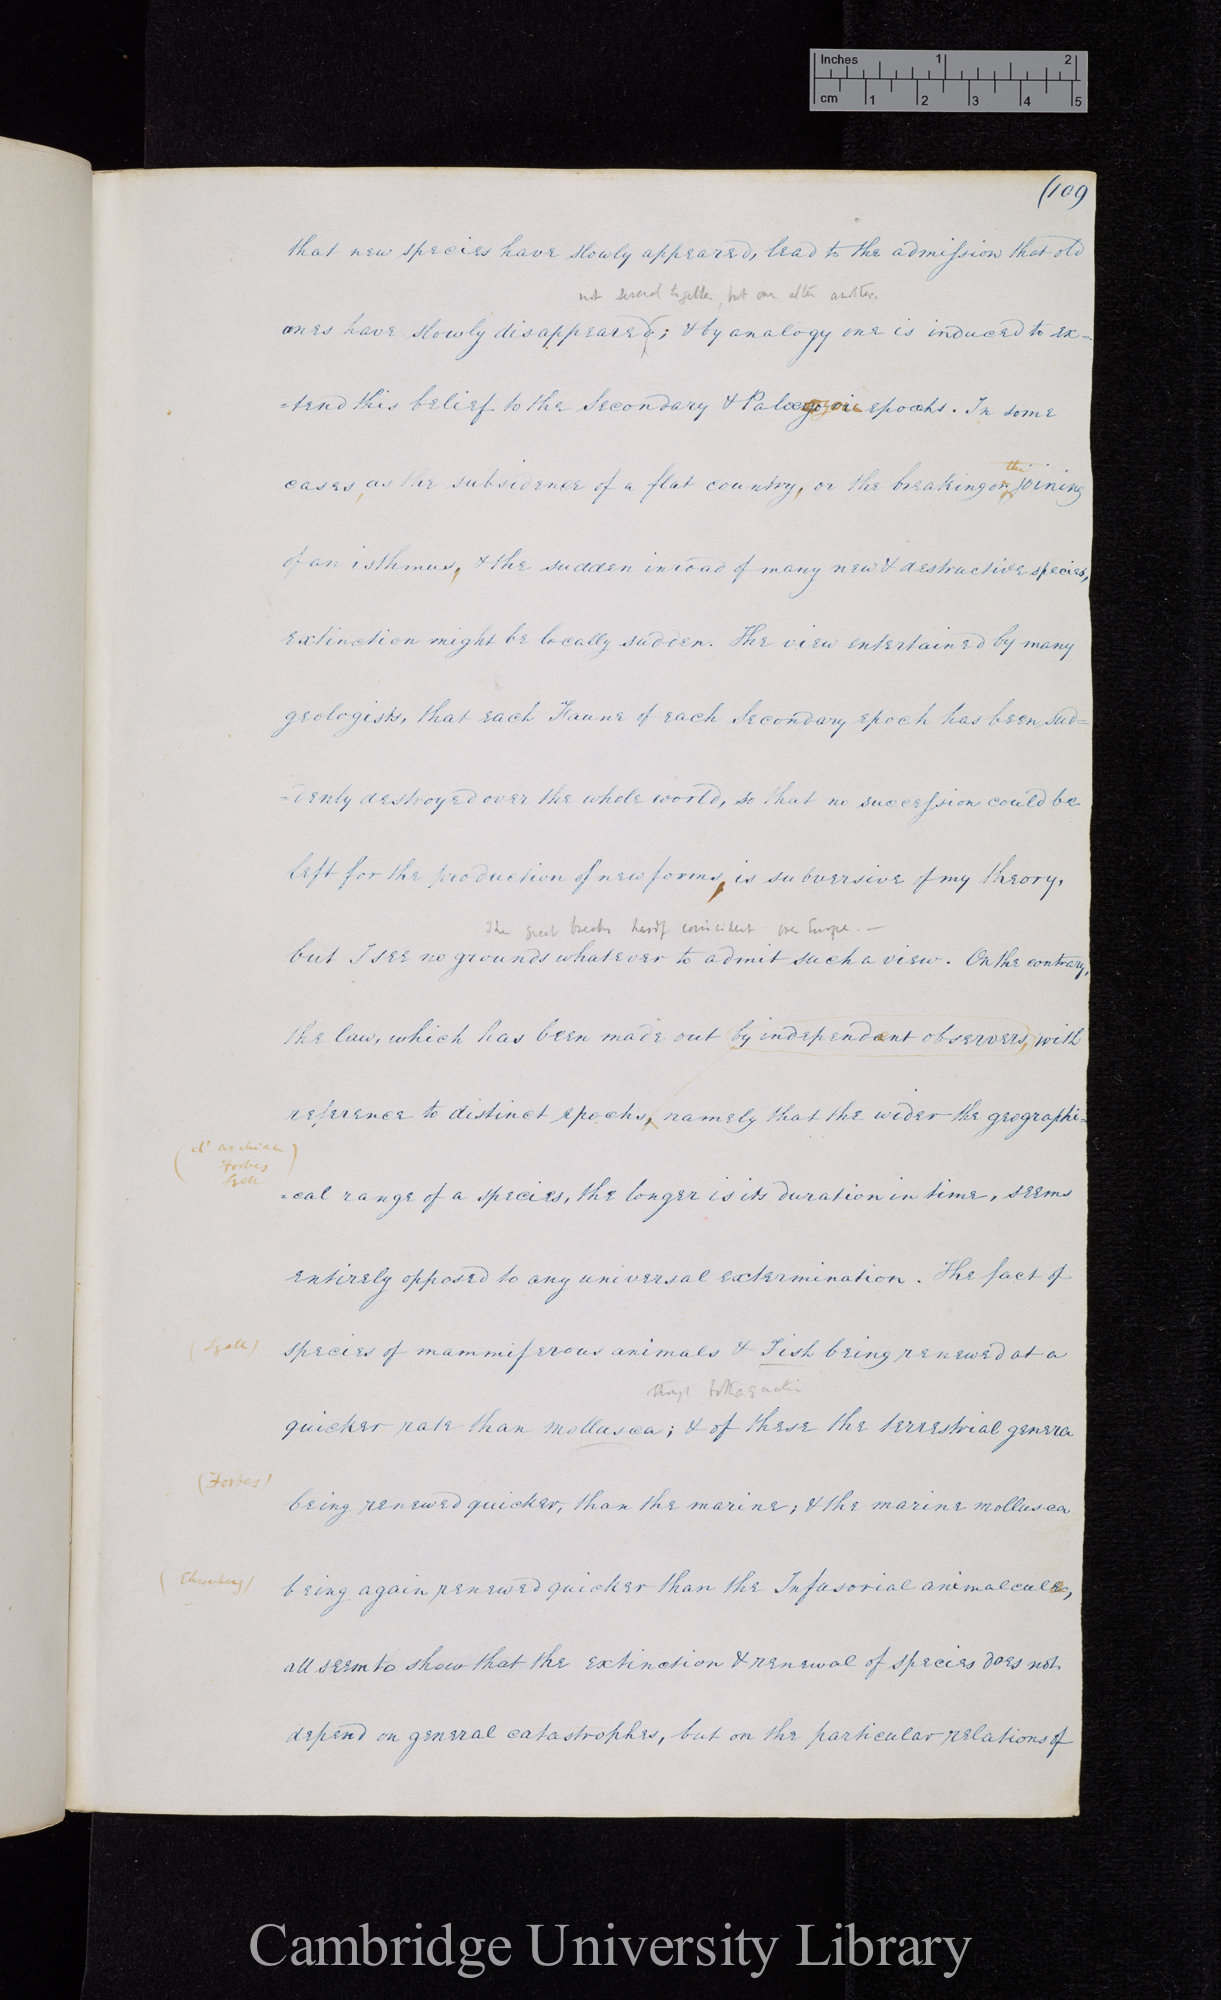 Inches 1 2
cm 1 2 3 4 5
(109
that new species have slowly appeared, lead to the admiſsion that old
not several together, but one after another.
ones have slowly disappeared; & by analogy one is induced to ex=
=tend this belief to the Secondary & Palæozoic epochs. In some
the
cases, as the subsidence of a flat country, or the breaking or joining
of an isthmus, & the sudden inroad of many new & destructive species,
extinction might be locally sudden. The view entertained by many
geologists, that each Faune of each Secondary epoch has been sud=
=denly destroyed over the whole world, so that no succeſsion could be
left for the production of new forms, is subversive of my theory,
The great breaks coincident over Europe. —
but I see no grounds whatever to admit such a view. On the contrary,
the law, which has been made out by independent observers, with
reference to distinct epochs, namely that the wider the geographi=
(d'Archiac
Forbes
Lyell)
=cal range of a species, the longer is its duration in time, seems
entirely opposed to any universal extermination. The fact of
(Lyell)
species of mammiferous animals & Fish being renewed at a
quicker rate than mollusca; & of these the terrestrial genera
(Forbes)
being renewed quicker, than the marine; & the marine mollusca
(Ehrenberg)
being again renewed quicker than the Infusorial animalculæ,
all seem to show that the extinction & renewal of species does not
depend on general catastrophes, but on the particular relations of
Cambridge University Library